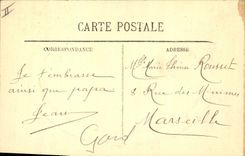 II
CARTE POSTALE
CORRESPONDANCE
ADRESSE
Je t'embrasse
ainsi que papa
Jean
Mlle Marie Rousset
8 Rue des Minimes
Marseille
Gard